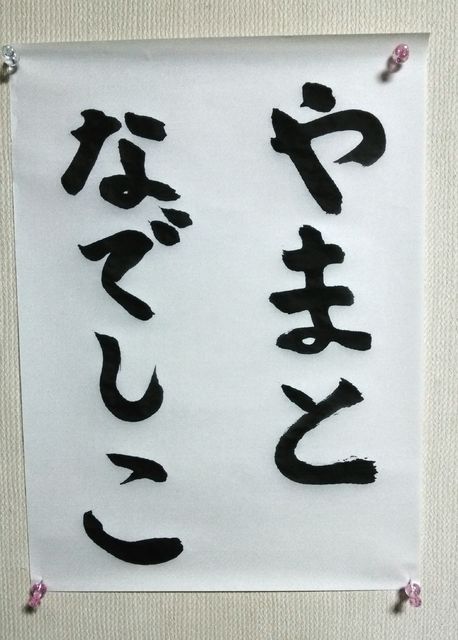 やまと
なでしこ